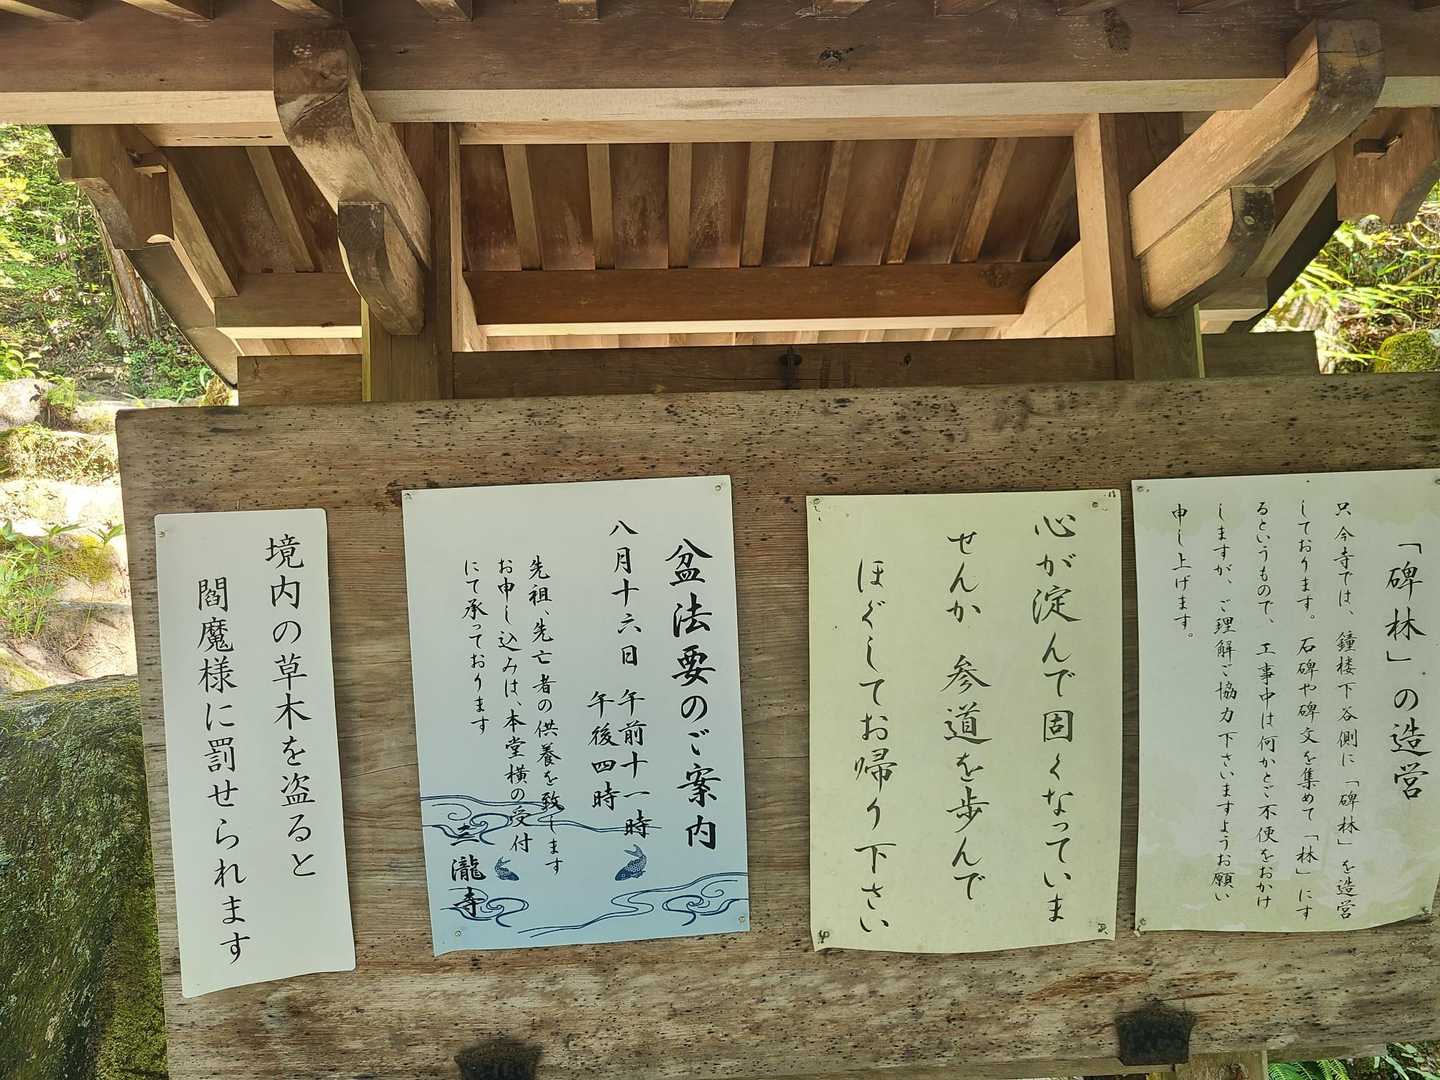 「碑林」の造営
只今寺では、鐘楼下谷側に「碑林」を造営
しております。石碑や碑文を集めて「林」にす
るというもので、工事中は何かとご不便をおかけ
しますが、ご理解ご協力下さいますようお願い
申し上げます。
心が淀んで固くなっていま
せんか 参道を歩んで
ほぐしてお帰り下さい
盆法要のご案内
八月十六日 午前十一時
午後四時
先祖、先亡者の供養を致します
お申し込みは、本堂横の受付
にて承っております
三瀧寺
境内の草木を盗ると
閻魔様に罰せられます